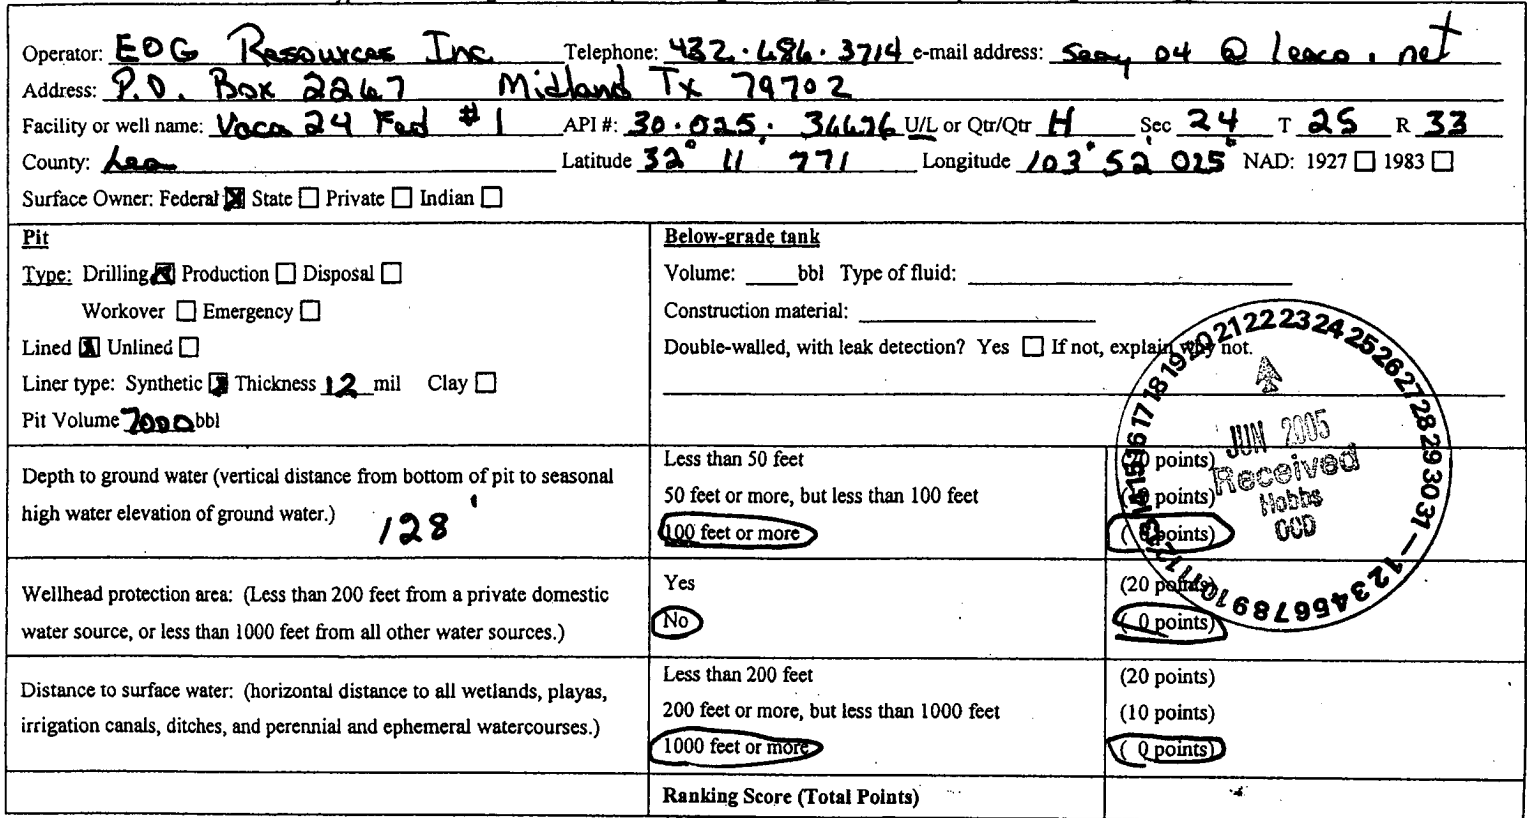 Operator: EOG Resources Inc. Telephone: 432.686.3714 e-mail address: seay 04 @ leaco.net
Address: P.O. Box 2267 Midland Tx 79702
Facility or well name: Vaca 24 Fed #1 API #: 30.025. 36676 U/L or Qtr/Qtr H Sec 24 T 25 R 33
County: Lea Latitude 32° 11' 771 Longitude 103° 52' 025" NAD: 1927 ☐ 1983 ☐
Surface Owner: Federal ☒ State ☐ Private ☐ Indian ☐
Pit
Type: Drilling ☒ Production ☐ Disposal ☐
Workover ☐ Emergency ☐
Lined ☒ Unlined ☐
Liner type: Synthetic ☒ Thickness 12 mil Clay ☐
Pit Volume 7000 bbl
Below-grade tank
Volume: ____bbl Type of fluid: ____
Construction material: ____
Double-walled, with leak detection? Yes ☐ If not, explain why not.
Depth to ground water (vertical distance from bottom of pit to seasonal
high water elevation of ground water.) 128'
Less than 50 feet (20 points)
50 feet or more, but less than 100 feet (10 points)
100 feet or more ( 0 points)
Wellhead protection area: (Less than 200 feet from a private domestic
water source, or less than 1000 feet from all other water sources.)
Yes (20 points)
No ( 0 points)
Distance to surface water: (horizontal distance to all wetlands, playas,
irrigation canals, ditches, and perennial and ephemeral watercourses.)
Less than 200 feet (20 points)
200 feet or more, but less than 1000 feet (10 points)
1000 feet or more ( 0 points)
Ranking Score (Total Points)
JUN 2005
Received
Hobbs
OCD
1 2 3 4 5 6 7 8 9 10 11 12 13 14 15 16 17 18 19 20 21 22 23 24 25 26 27 28 29 30 31